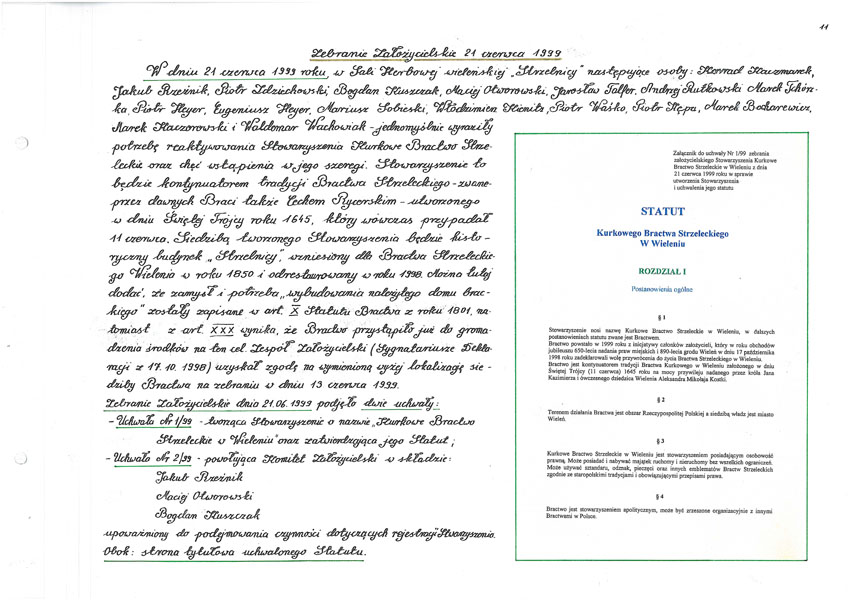 11
Zebranie Założycielskie 21 czerwca 1999
W dniu 21 czerwca 1999 roku, w Sali Herbowej wieleńskiej „Strzelnicy" następujące osoby: Konrad Kaczmarek,
Jakub Rzeźnik, Piotr Zdziechowski, Bogdan Kuszczak, Maciej Otworowski, Jarosław Talfer, Andrzej Rutkowski, Marek Tchórz-
ka, Piotr Heyer, Eugeniusz Heyer, Mariusz Sobieski, Włodzimierz Kienitz, Piotr Waśko, Piotr Kępa, Marek Bockarewicz,
Marek Kaczorowski i Waldemar Wachowiak - jednomyślnie wyraziły
potrzebę reaktywowania Stowarzyszenia Kurkowe Bractwo Strze-
leckie oraz chęć wstąpienia w jego szeregi. Stowarzyszenie to
będzie kontynuatorem tradycji Bractwa Strzeleckiego - zwane-
przez dawnych Braci także Cechem Rycerskim - utworzonego
w dniu Świętej Trójcy roku 1645, który wówczas przypadał
11 czerwca. Siedzibą tworzonego Stowarzyszenia będzie histo-
ryczny budynek „Strzelnicy", wzniesiony dla Bractwa Strzeleckie-
go Wielenia w roku 1850 i odrestaurowany w roku 1998. Można tutaj
dodać, że zamysł i potrzeba „wybudowania należytego domu brac-
kiego" zostały zapisane w art. X Statutu Bractwa z roku 1801, na-
tomiast z art. XXX wynika, że Bractwo przystąpiło już do groma-
dzenia środków na ten cel. Zespół Założycielski (Sygnatariusze Dekla-
racji z 17.10.1998) uzyskał zgodę na wymienioną wyżej lokalizację sie-
dziby Bractwa na zebraniu w dniu 13 czerwca 1999.
Zebranie Założycielskie dnia 21.06.1999 podjęło dwie uchwały:
- Uchwała Nr 1/99 - tworząca Stowarzyszenie o nazwie „Kurkowe Bractwo
Strzeleckie w Wieleniu" oraz zatwierdzająca jego Statut;
- Uchwała Nr 2/99 - powołująca Komitet Założycielski w składzie:
Jakub Rzeźnik
Maciej Otworowski
Bogdan Kuszczak
upoważniony do podejmowania czynności dotyczących rejestracji Stowarzyszenia.
Obok: strona tytułowa uchwalonego Statutu.
Załącznik do uchwały Nr 1/99 zebrania
założycielskiego Stowarzyszenia Kurkowe
Bractwo Strzeleckie w Wieleniu z dnia
21 czerwca 1999 roku w sprawie
utworzenia Stowarzyszenia
i uchwalenia jego statutu
STATUT
Kurkowego Bractwa Strzeleckiego
W Wieleniu
ROZDZIAŁ I
Postanowienia ogólne
§ 1
Stowarzyszenie nosi nazwę Kurkowe Bractwo Strzeleckie w Wieleniu, w dalszych
postanowieniach statutu zwane jest Bractwem.
Bractwo powstało w 1999 roku z inicjatywy członków założycieli, który w roku obchodów
jubileuszu 650-lecia nadania praw miejskich i 890-lecia grodu Wieleń w dniu 17 października
1998 roku zadeklarowali wolę przywrócenia do życia Bractwa Strzeleckiego.
Bractwo jest kontynuatorem tradycji Bractwa Kurkowego w Wieleniu założonego w dniu
Świętej Trójcy (11 czerwca) 1645 roku na mocy przywileju nadanego przez króla Jana
Kazimierza i ówczesnego dziedzica Wielenia Aleksandra Mikołaja Kostki.
§ 2
Terenem działania Bractwa jest obszar Rzeczypospolitej Polskiej a siedzibą władz jest miasto
Wieleń.
§ 3
Kurkowe Bractwo Strzeleckie w Wieleniu jest stowarzyszeniem posiadającym osobowość
prawną. Może posiadać i nabywać majątek ruchomy i nieruchomy bez wszelkich ograniczeń.
Może używać sztandaru, odznak, pieczęci oraz innych emblematów Bractw Strzeleckich
zgodnie ze staropolskimi tradycjami i obowiązującymi przepisami prawa.
§ 4
Bractwo jest stowarzyszeniem apolitycznym, może być zrzeszone organizacyjnie z innymi
Bractwami w Polsce.